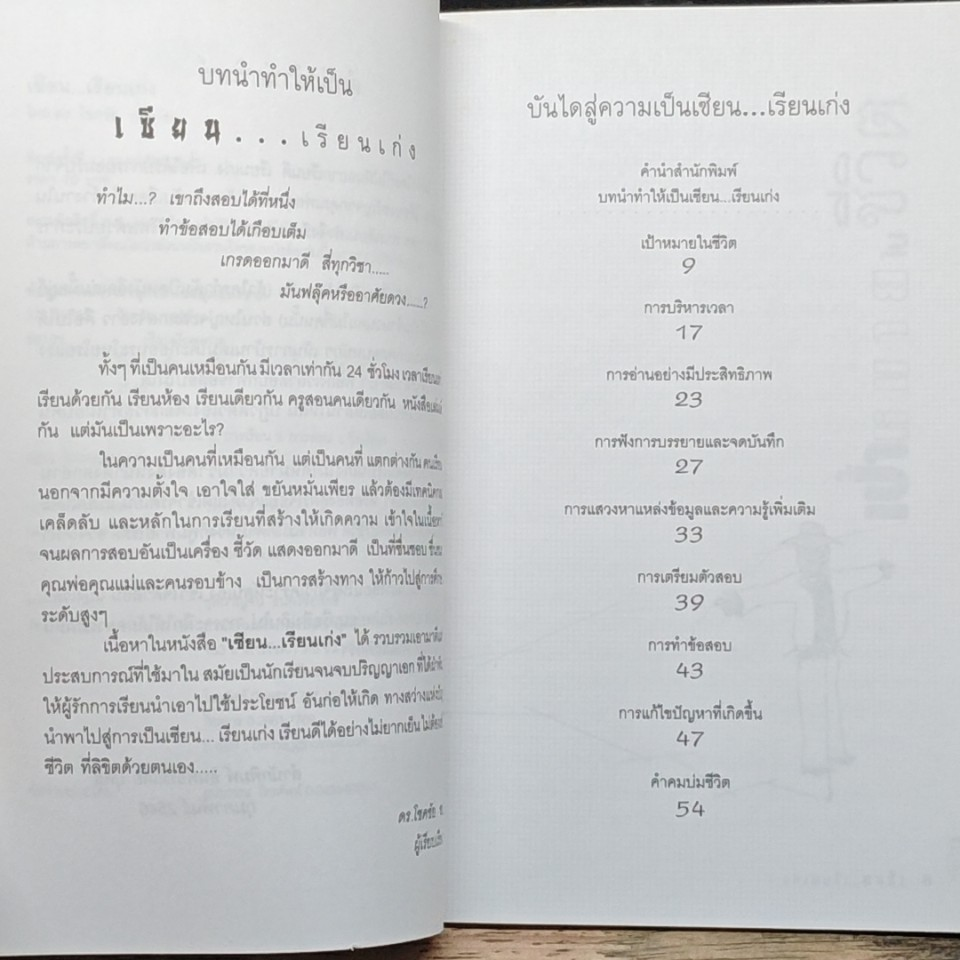 บทนำทำให้เป็น
เซียน...เรียนเก่ง
ทำไม...? เขาถึงสอบได้ที่หนึ่ง
ทำข้อสอบได้เกือบเต็ม
เกรดออกมาดี สี่ทุกวิชา.....
มันฟลุ๊คหรืออาศัยดวง.....?
ทั้งๆ ที่เป็นคนเหมือนกัน มีเวลาเท่ากัน 24 ชั่วโมง
เรียนด้วยกัน เรียนห้อง เรียนเดียวกัน ครูสอนคนเดียวกัน
กัน แต่มันเป็นเพราะอะไร?
ในความเป็นคนที่เหมือนกัน แต่เป็นคนที่ แตกต่างกัน
นอกจากมีความตั้งใจ เอาใจใส่ ขยันหมั่นเพียร แล้วต้องมีเทคนิค
เคล็ดลับ และหลักในการเรียนที่สร้างให้เกิดความ เข้าใจในเนื้อหา
จนผลการสอบอันเป็นเครื่อง ชี้วัด แสดงออกมาดี เป็นที่ชื่นชอบ
คุณพ่อคุณแม่และคนรอบข้าง เป็นการสร้างทาง ให้ก้าวไปสู่การ
ระดับสูงๆ
เนื้อหาในหนังสือ "เซียน...เรียนเก่ง" ได้ รวบรวมเอามา
ประสบการณ์ที่ใช้มาใน สมัยเป็นนักเรียนจนจบปริญญาเอก
ให้ผู้รักการเรียนนำเอาไปใช้ประโยชน์ อันก่อให้เกิด ทางสว่าง
นำพาไปสู่การเป็นเซียน... เรียนเก่ง เรียนดีได้อย่างไม่ยากเย็น
ชีวิต ที่ลิขิตด้วยตนเอง.....
ดร.โชคชัย
บันไดสู่ความเป็นเซียน...เรียนเก่ง
คำนำสำนักพิมพ์
บทนำทำให้เป็นเซียน...เรียนเก่ง
เป้าหมายในชีวิต
9
การบริหารเวลา
17
การอ่านอย่างมีประสิทธิภาพ
23
การฟังการบรรยายและจดบันทึก
27
การแสวงหาแหล่งข้อมูลและความรู้เพิ่มเติม
33
การเตรียมตัวสอบ
39
การทำข้อสอบ
43
การแก้ไขปัญหาที่เกิดขึ้น
47
คำคมบ่มชีวิต
54